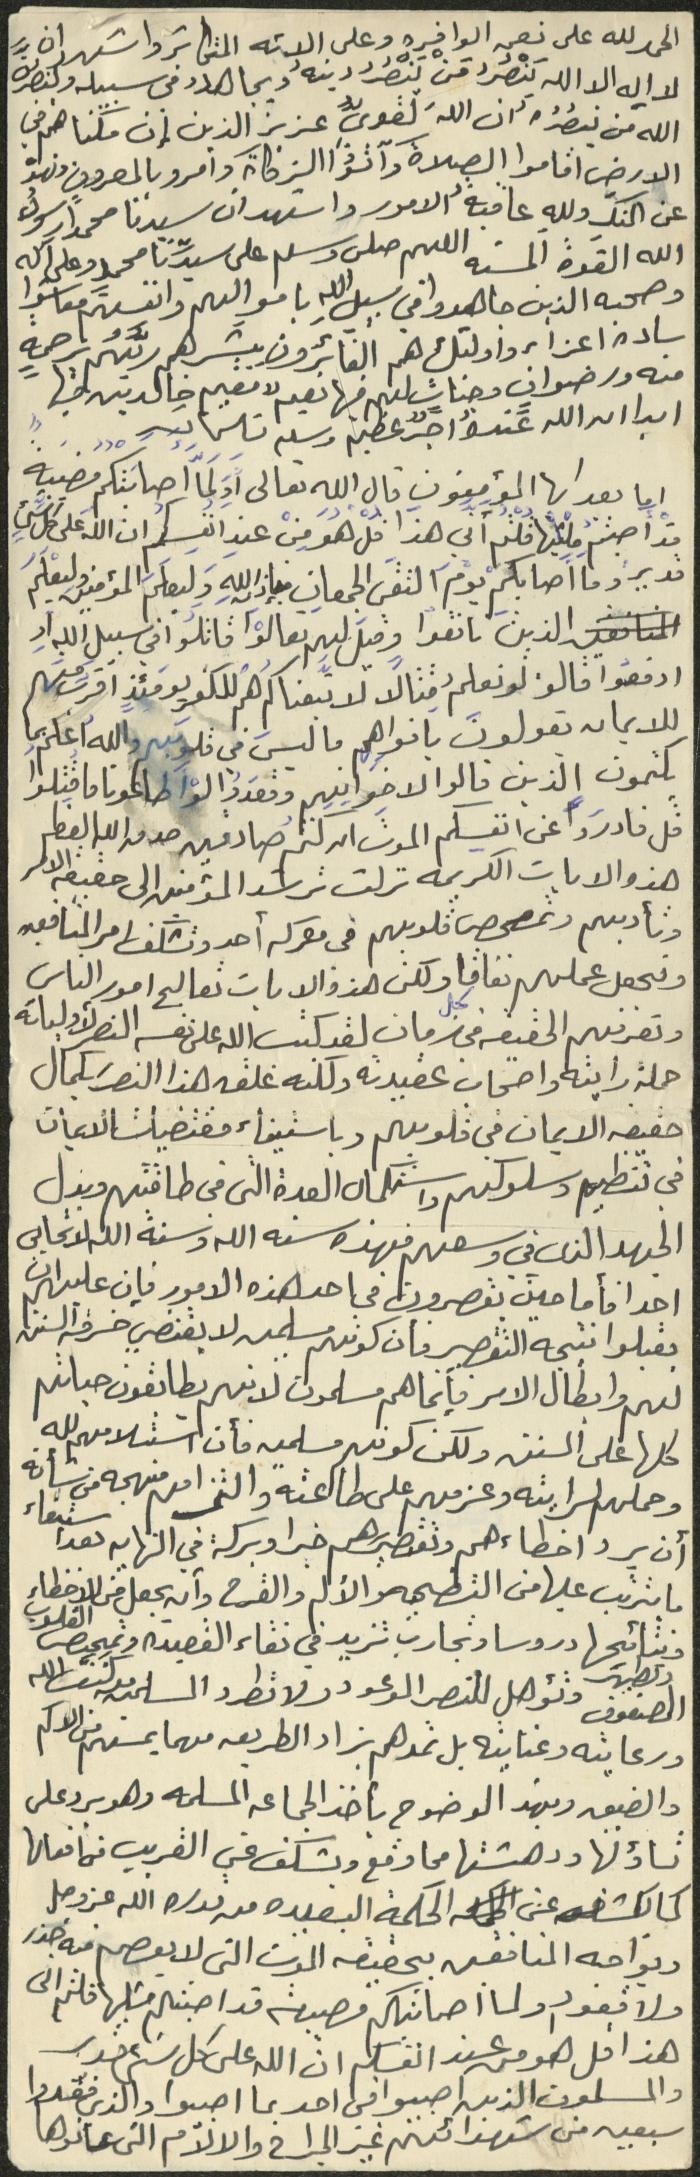 الحمد لله على نعمه الوافره وعلى الائه المتكاثره واشهد ان
لا اله الا الله يَنْصُرُ مَنْ يَنْصُرُ دينه ويجاهد في سبيله ولينصرن
الله من ينصُرُه ان اللهَ لقويٌ عزيز الذين إن مكّناهم في
الارض اقاموا الصلاة وآتَوُا الزكاةَ وأمرو بالمعروف ونهوْ
عن المنكَر وللهِ عاقبةُ الامور واشهد ان سيدَنا محمدا رسولُ
الله القدوة الحسنه اللهم صلى وسلم على سيدِنا محمدٍ وعلى آله
وصحبه الذين جاهدوا في سبيل اللهِ باموالهم وانفسهم فعاشوا
سادة اعزاء واولئك هم الفائزون يبشرهم ربُّهُم برحمةٍ
منه ورضوانٍ وجناتٍ لهم فيها نعيم مقيم خالدين فيها
ابدا ان الله عنده اجرٌ عظيم وسلم تسليما
اما بعد ايها المؤمنون قال الله تعالى أوَلَمَّا أصابتكم مُصيبَةٌ
قدْ أصبْتُم مِثْلَيْها قُلْتُم أنّى هذا قُلْ هُوَ مِنْ عندِ انفُسِكُم ان اللهَ على كل شيءٍ
قدير وما أصابكم يوْمَ التقَى الجمعانِ فبإذْنِ اللهِ وَلِيعلَمَ المؤمنين وليَعْلَمَ
الذينَ نافقُوا وقيلَ لهم تعالَوْا قاتلُوا في سبيل اللهِ أوِ
ادفعُوا قالوا لو نعلم قتالًا لاتّبعناكم هُمْ للكفر يومَئذٍ اقربُ منهم
للايمان يقولون بافواهِهِم ما ليسَ في قلوبِهِم واللهُ أعْلَم بما
يكتمون الذين قالوا لاخوانِهِم وقعَدُوا لوْ اطاعُونا ما قُتِلُوا
قل فادرءوا عن انفسكم الموتَ ان كنتُم صادقين صدق الله العظيم
هذه الايات الكريمه نزلت ترشد المؤمنين الى حقيقة الامر
وتأديبهم وتمحيص قلوبهم في معركه أحد وتكشف امر المنافقين
وتجعل عملهم نفاقا ولكن هذه الايات تعالج امور الناس
وتعرفهم الحقيقه في كل زمان لقد كتب الله على نفسه النصر لأوليائه
حملة رايته واصحاب عقيدته ولكنه علق هذا النصر بكمال
حقيقه الايمان في قلوبهم وباستيفاء مقتضيات الايمان
في تنظيمهم وسلوكهم وباستكمال العدة التى في طاقتهم وببذل
الجهد الذى في وسعهم فهذه سنه الله وسنة الله لا تحابي
احدا فأما حين يقصرون في احد هذه الامور فإن عليهم ان
يقبلوا نتيجه التقصير فأن كونهم مسلمين لا يقتضي خرق السنن
لهم وابطال الامر فإنماهم مسلمون لانهم يطابقون حياتهم
كلها على السنن ولكن كونهم مسلمين فأن استسلامهم لله
وحملهم لرايته وعزمهم على طاعته والتزامهم منهجه من شأنه
أن يرد اخطاءهم وتقصيرهم خيرا وبركة في النهايه بعد استيفاء
ما يترتب عليها من التضحيه والألم والقرح وأن يجعل من الاخطاء
ونتائجها دروسا وتجارب تزيد في نقاء العقيده وتمحيص القلوب
وتطهير الصفوف وتؤهل للنصر الموعود ولا تطرد المسلمين من كنف الله
ورعايته وعنايته بل تمدهم بزاد الطريق مهما يمسهم من الالم
والضيق وبهذا الوضوح يأخذ الجماعه المسلمه وهو يرد على
تساؤلها ودهشتها مما وقع ويكشف عن القريب من افعالها
كما يكشف عن الحكمة البعيده من قدر الله عز وجل
ويواجه المنافقين بحقيقه الموت التى لا يعصم منه حذر
ولا قعود اولما اصابتكم مصيبه قد اصبتم مثليها قلتم انى
هذا قل هو من عند انفسكم ان الله على كل شيء قدير
والمسلمون الذين اصيبوا في احد بما اصيبوا والذين فقدوا
سبعين من شهدائهم غير الجراح والالام التى عانوها